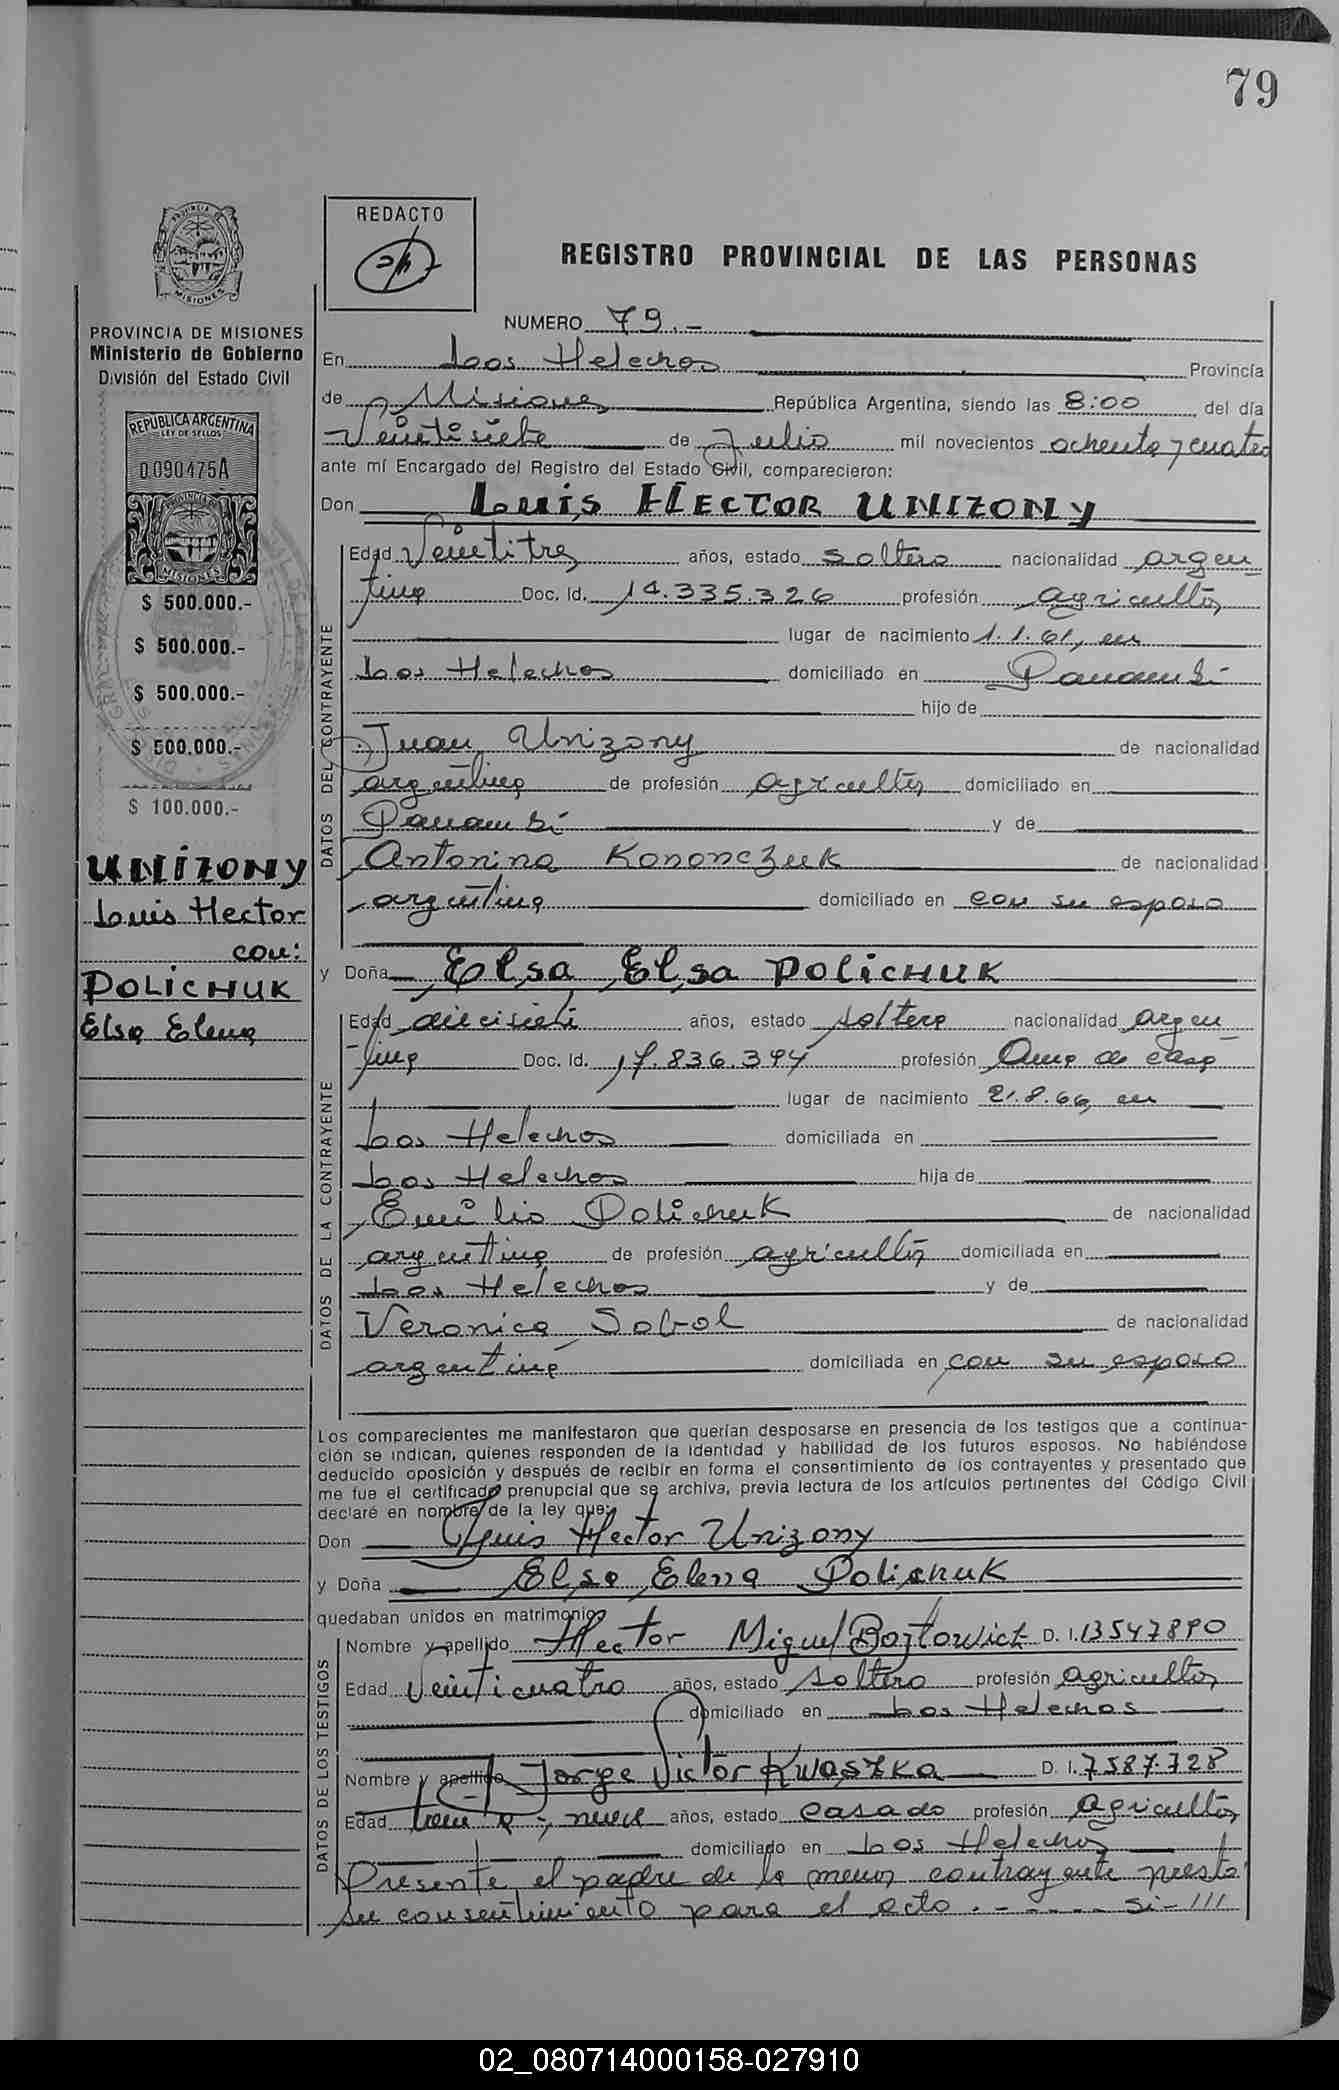 79
REDACTO
REGISTRO PROVINCIAL DE LAS PERSONAS
MISIONES
PROVINCIA DE MISIONES
Ministerio de Gobierno
División del Estado Civil
REPUBLICA ARGENTINA
LEY DE SELLOS
0090475A
MISIONES
$ 500.000.-
$ 500.000.-
$ 500.000.-
$ 500.000.-
$ 100.000.-
UNIZONY
Luis Hector
con:
POLICHUK
Elsa Elena
NUMERO 79.-
En Los Helechos Provincia
de Misiones República Argentina, siendo las 8:00 del día
Veintisiete de Julio mil novecientos ochenta y cuatro
ante mí Encargado del Registro del Estado Civil, comparecieron:
Don LUIS HECTOR UNIZONY
DATOS DEL CONTRAYENTE
Edad Veintitres años, estado soltero nacionalidad argen
tina Doc. Id. 14.335.326 profesión agricultor
lugar de nacimiento 1.1.61, en
Los Helechos domiciliado en Panambi
hijo de
Juan Unizony de nacionalidad
argentina de profesión agricultor domiciliado en
Panambi y de
Antonina Kononczuk de nacionalidad
argentina domiciliado en con su esposo
y Doña Elsa Elsa POLICHUK
DATOS DE LA CONTRAYENTE
Edad diecisiete años, estado soltera nacionalidad argen
tina Doc. Id. 17.836.394 profesión Ama de casa
lugar de nacimiento 21.8.66, en
Los Helechos domiciliada en
Los Helechos hija de
Emilio Polichuk de nacionalidad
argentina de profesión agricultor domiciliada en
Los Helechos y de
Veronica Sobol de nacionalidad
argentina domiciliada en con su esposo
Los comparecientes me manifestaron que querían desposarse en presencia de los testigos que a continua-
ción se indican, quienes responden de la identidad y habilidad de los futuros esposos. No habiéndose
deducido oposición y después de recibir en forma el consentimiento de los contrayentes y presentado que
me fue el certificado prenupcial que se archiva, previa lectura de los artículos pertinentes del Código Civil
declaré en nombre de la ley que:
Don Luis Hector Unizony
y Doña Elsa Elena Polichuk
quedaban unidos en matrimonio
DATOS DE LOS TESTIGOS
Nombre y apellido Hector Miguel Bojtowich D. I. 13547890
Edad Veinticuatro años, estado soltero profesión agricultor
domiciliado en Los Helechos
Nombre y apellido Jorge Victor Kwaszka D. I. 7587.728
Edad años, estado casado profesión agricultor
domiciliado en Los Helechos
Presente el padre de la menor contrayente presta
su consentimiento para el acto.- - - - - Si-///
02_080714000158-027910